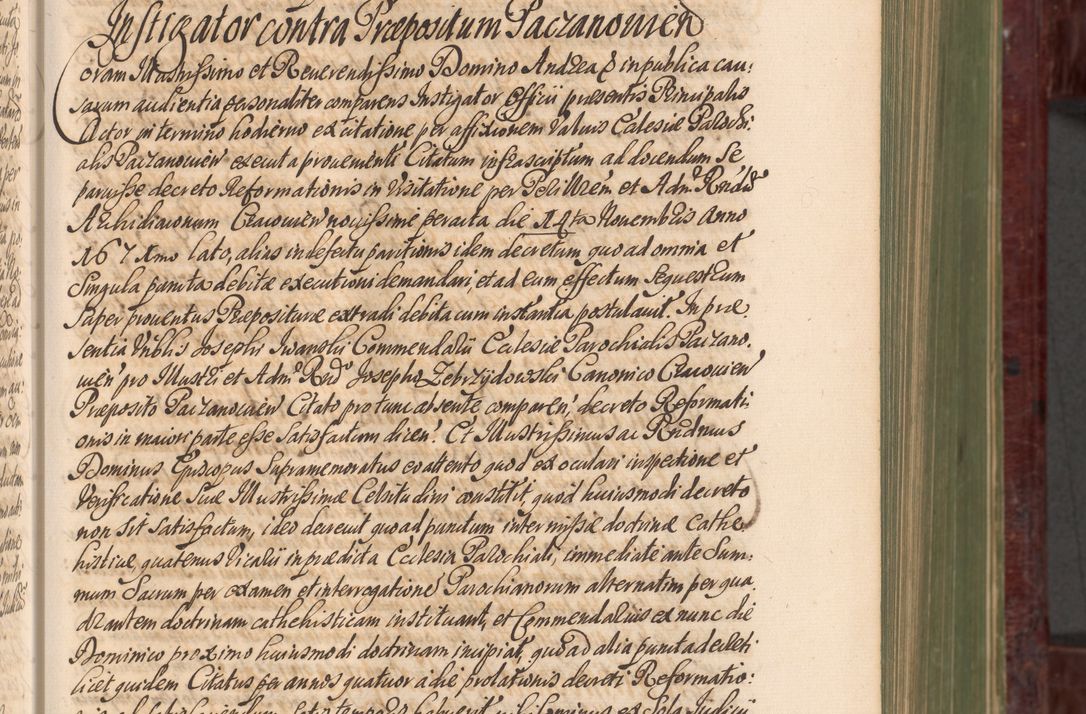 Instigator contra Præpositum Paczanowien
Coram Illustrissimo et Reuerendissimo Domino Andrea & in publica cau:
sarum audientia personaliter comparens Instigator Officii præsentis Principalis
Actor in termino hodierno ex citatione per affixionem Valuis Ecclesiæ Parochi,
alis Paczanowien executa proueniente Citatum infrascriptum ad docendum Se
paruisse decreto Reformationis in Visitatione per Per Illrem et Admd Rndū
Archidiaconum Cracouien nouissime peracta die 14ta Nouembris Anno
1671mo lato, alias in defectu paritionis idem decretum quo ad omnia et
Singula puncta debitæ executioni demandari, et ad eum effectum Sequestrum
Super prouentus Præpositure extradi debita cum instantia postulauit. In præ,
sentia Vrblis Josephi Iwanski Commendarii Ecclesiæ Parochialis Paczano,
wien pro Illustri et Admd Rndo Josepho Zebrzydowski Canonico Cracouien
Præposito Paczanowien Citato pro tunc absente comparen, decreto Reformati,
onis in maiori parte esse Satisfactum dicen. Et Illustrissimus ac Rndmus
Dominus Episcopus Supramemoratus eo attento quod ex oculari inspectione et
Verificatione Suæ Illustrissimæ Celsitudini constitit, quod huiusmodi decreto
non Sit Satisfactum, ideo decreuit quo ad punctum intermissæ doctrinæ Cathe
histicæ, quatenus Vicarii in prædicta Ecclesia Parochiali, immediate ante Sum:
mum Sacrum per examen et interrogatione Parochianorum alternatim per qua
drantem doctrinam cathehisticam instituant, et Commendarius ex nunc die
Dominico proximo huiusmodi doctrinam incipiat, quo ad alia puncta decreti
licet quidem Citatus per annos quatuor a die prolationis decreti Reformatio: